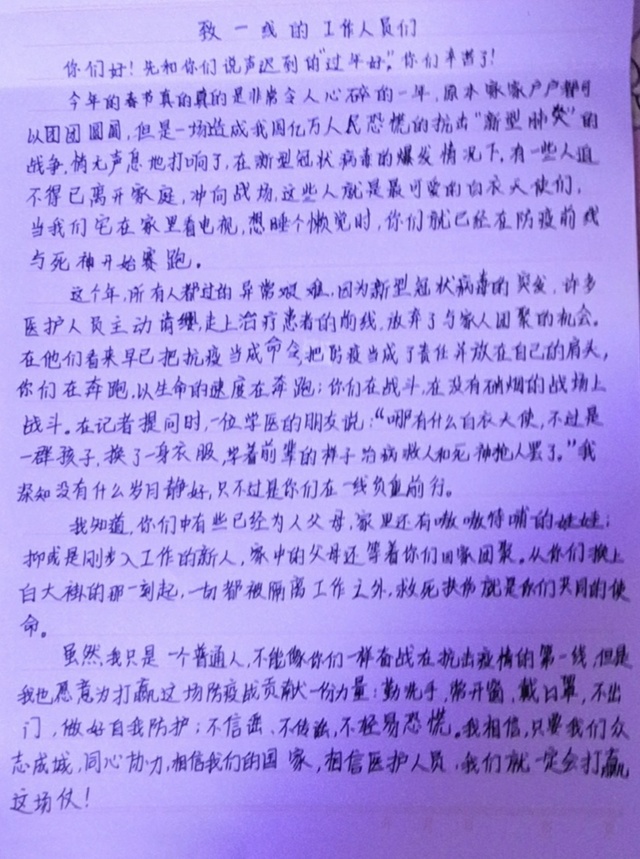 致一线的工作人员们
你们好！先和你们说声迟到的“过年好”，你们辛苦了！
今年的春节真的真的是非常令人心碎的一年，原本家家户户都可
以团团圆圆，但是一场造成我国亿万人民恐慌的抗击“新型肺炎”的
战争，悄无声息地打响了，在新型冠状病毒的爆发情况下，有一些人迫
不得已离开家庭，冲向战场，这些人就是最可爱的白衣天使们，
当我们宅在家里看电视，想睡个懒觉时，你们就已经在防疫前线
与死神开始赛跑。
这个年，所有人都过的异常艰难，因为新型冠状病毒的突发，许多
医护人员主动请缨，走上治疗患者的前线，放弃了与家人团聚的机会。
在他们看来早已把抗疫当成命令，把防疫当成了责任并放在自己的肩头，
你们在奔跑，以生命的速度在奔跑；你们在战斗，在没有硝烟的战场上
战斗。在记者提问时，一位学医的朋友说：“哪有什么白衣天使，不过是
一群孩子，换了一身衣服，学着前辈的样子治病救人和死神抢人罢了。”我
深知没有什么岁月静好，只不过是你们在一线负重前行。
我知道，你们中有些已经为人父母，家里还有嗷嗷待哺的娃娃；
抑或是刚步入工作的新人，家中的父母还等着你们回家团聚。从你们换上
白大褂的那一刻起，一切都被隔离工作之外，救死扶伤就是你们共同的使
命。
虽然，我只是一个普通人，不能像你们一样奋战在抗击疫情的第一线，但是
我也愿意为打赢这场防疫战贡献一份力量：勤洗手，常开窗，戴口罩，不出
门，做好自我防护；不信谣、不传谣，不轻易恐慌。我相信，只要我们众
志成城，同心协力，相信我们的国家，相信医护人员，我们就一定会打赢
这场仗！